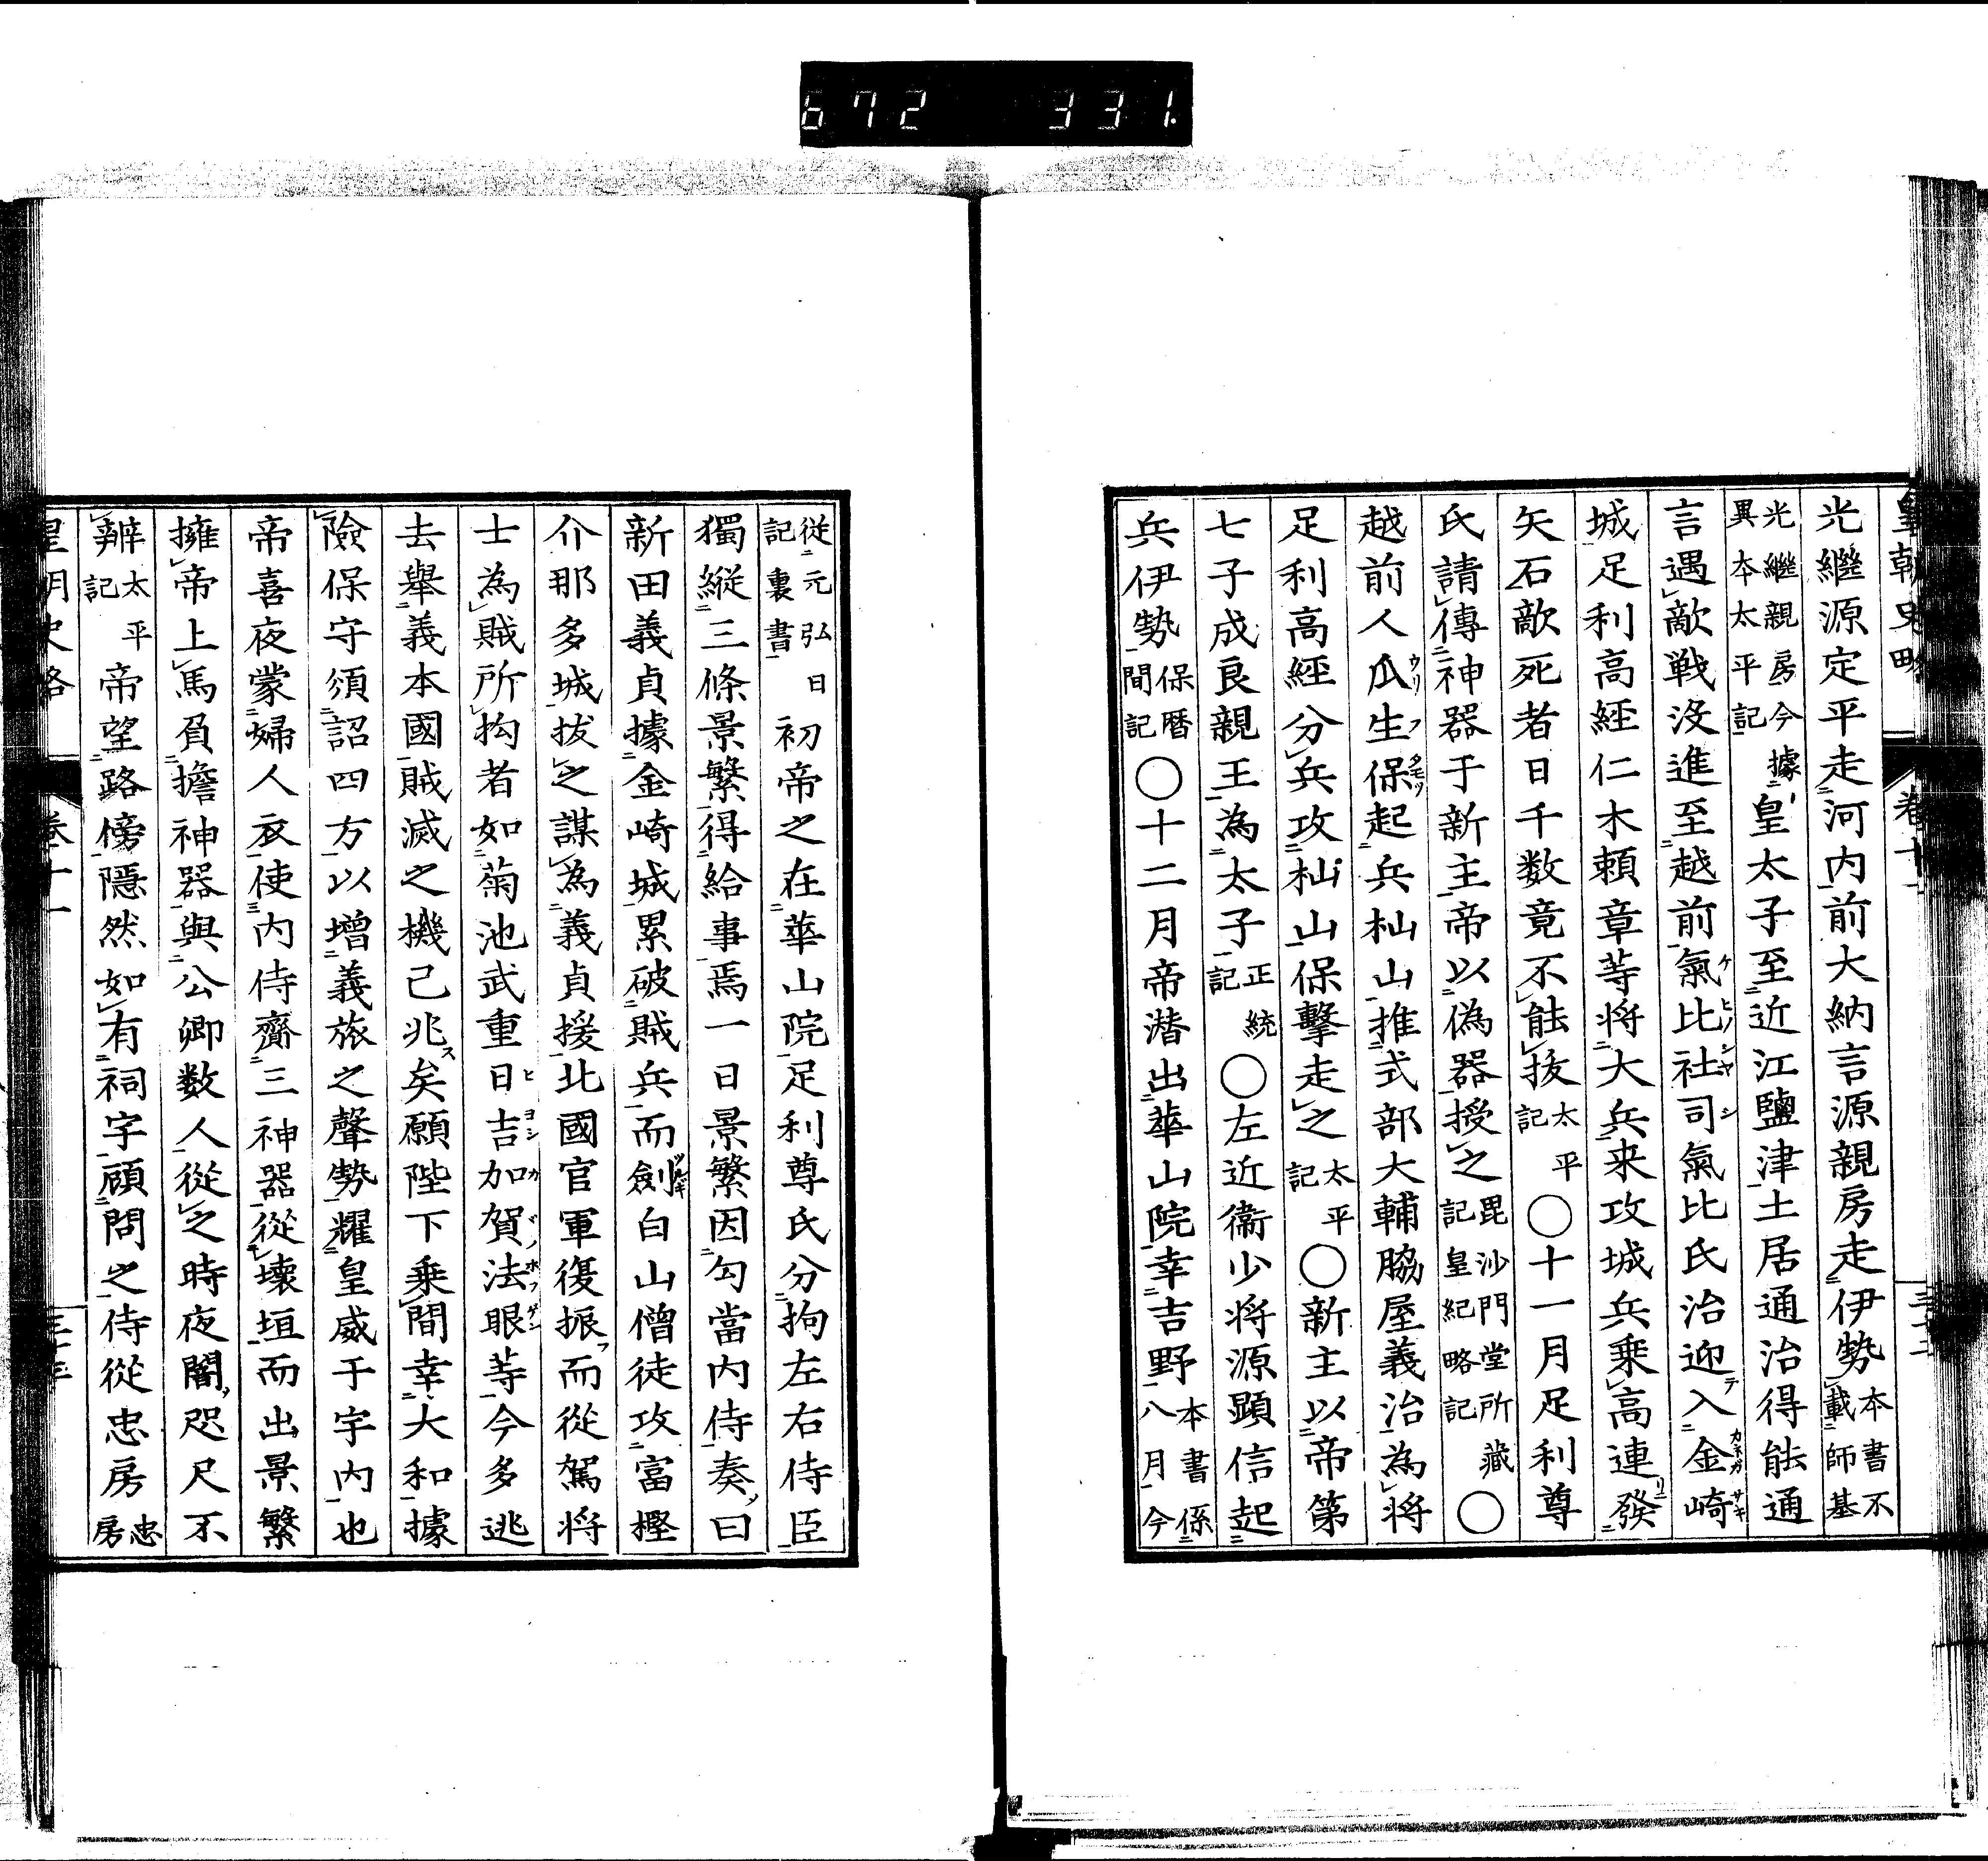 672 331
皇朝史略 卷十一
光繼源定平走河内前大納言源親房走伊勢本書不載師基
光繼親房今據異本太平記皇太子至近江鹽津土居通治得能通
言遇敵戰没進至越前氣比社司氣比氏治迎入金崎
城足利高経仁木頼章等將大兵来攻城兵乘高連發
矢石敵死者日千数竟不能拔太平記○十一月足利尊
氏請傳神器于新主帝以偽器授之毘沙門堂所藏記皇紀略記○
越前人瓜生保起兵杣山推式部大輔脇屋義治為將
足利高經分兵攻杣山保擊走之太平記○新主以帝第
七子成良親王為太子正統記○左近衞少将源顕信起
兵伊勢保暦間記○十二月帝潜出華山院幸吉野本書係八月今
從元弘日記裏書初帝之在華山院足利尊氏分拘左右侍臣
獨縱三條景繁得給事焉一日景繁因勾當内侍奏曰
新田義貞據金崎城累破賊兵而劍白山僧徒攻富樫
介那多城拔之謀為義貞援北國官軍復振而從駕將
士為賊所拘者如菊池武重日吉加賀法眼等今多逃
去舉義本國賊滅之機已兆矣願陛下乘間幸大和據
險保守須詔四方以增義旅之聲勢耀皇威于宇内也
帝喜夜蒙婦人衣使内侍齎三神器從壊垣而出景繁
擁帝上馬負擔神器與公卿数人從之時夜闇咫尺不
辨太平記帝望路傍隱然如有祠宇顧問之侍從忠房忠房
皇朝史略 卷十一